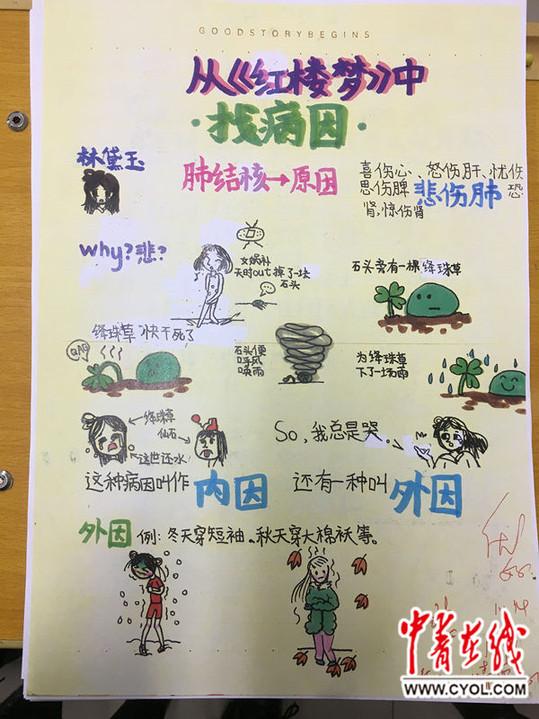 GOODSTORYBEGINS
从《红楼梦》中
·找病因·
林黛玉
肺结核→原因
喜伤心、怒伤肝、忧伤
思伤脾 悲伤肺 恐
肾,惊伤肾
why?悲?
女娲补
天时out掉了一块
石头
石头旁有一棵绛珠草
绛珠草快干死了
石头便
呼风
唤雨
为绛珠草
下了一场雨
绛珠草
仙石
这世还水!
So,我总是哭
这种病因叫作 内因
还有一种叫 外因
外因 例:冬天穿短袖。秋天穿大棉袄等。
中青在线
WWW.CYOL.COM